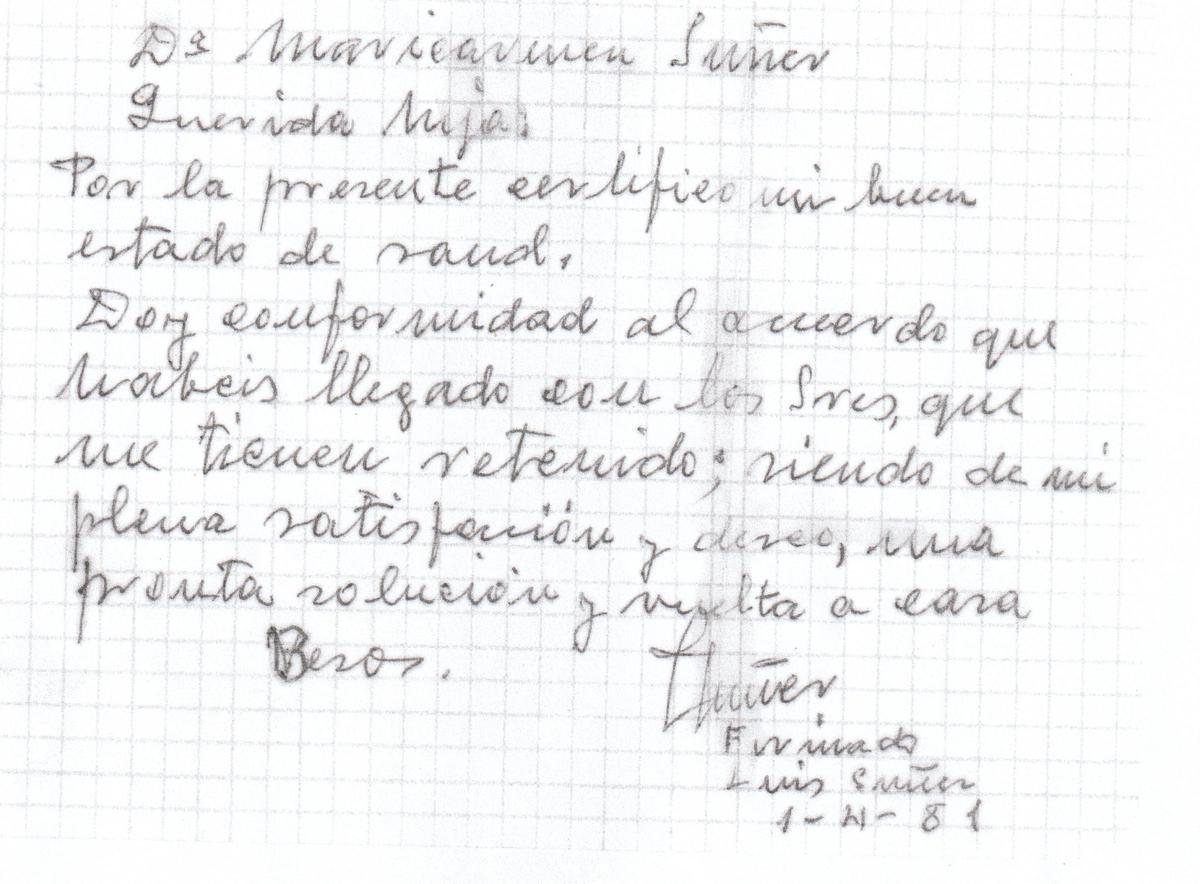 Dª Maricarmen Suñer
Querida hija:
Por la presente certifico mi buen
estado de saud.
Doy conformidad al acuerdo que
habeis llegado con los Sres, que
me tienen retenido; siendo de mi
plena satisfación y deseo, una
pronta solución y vuelta a casa
Besos.
Suñer
Firmado
Luis Suñer
1-4-81